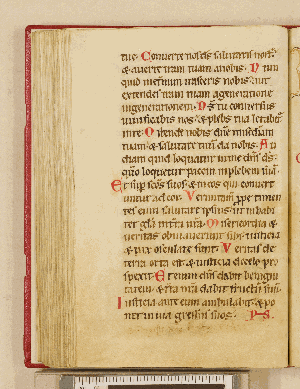 tue. Converte nos deus salutaris noster
& averte iram tuam a nobis. Num
quid in eternum irasceris nobis aut
extendes iram tuam a generatione
in generationem. Ds tu conversus
vivificabis nos & plebs tua letabitur
in te. Ostende nobis dne misediam
tuam & salutare tuum da nobis. Au
diam quid loquatur in me dns ds
qm loquetur pacem in plebem suam
Et sup scos suos & in eos qui convert
untur ad cor. Veruntam prope timen
tes eum salutare ipsius ut inhabi
tet gla in tra nra. Misericordia &
veritas obviaverunt sibi iusticia
& pax osculate sunt. Veritas de
terra orta est & iusticia de celo pro
spexit. Etenim dns dabit benigni
tatem & tra nra dabit fructum suum
Iusticia ante eum ambulabit & po
net in via gressus suos. PS